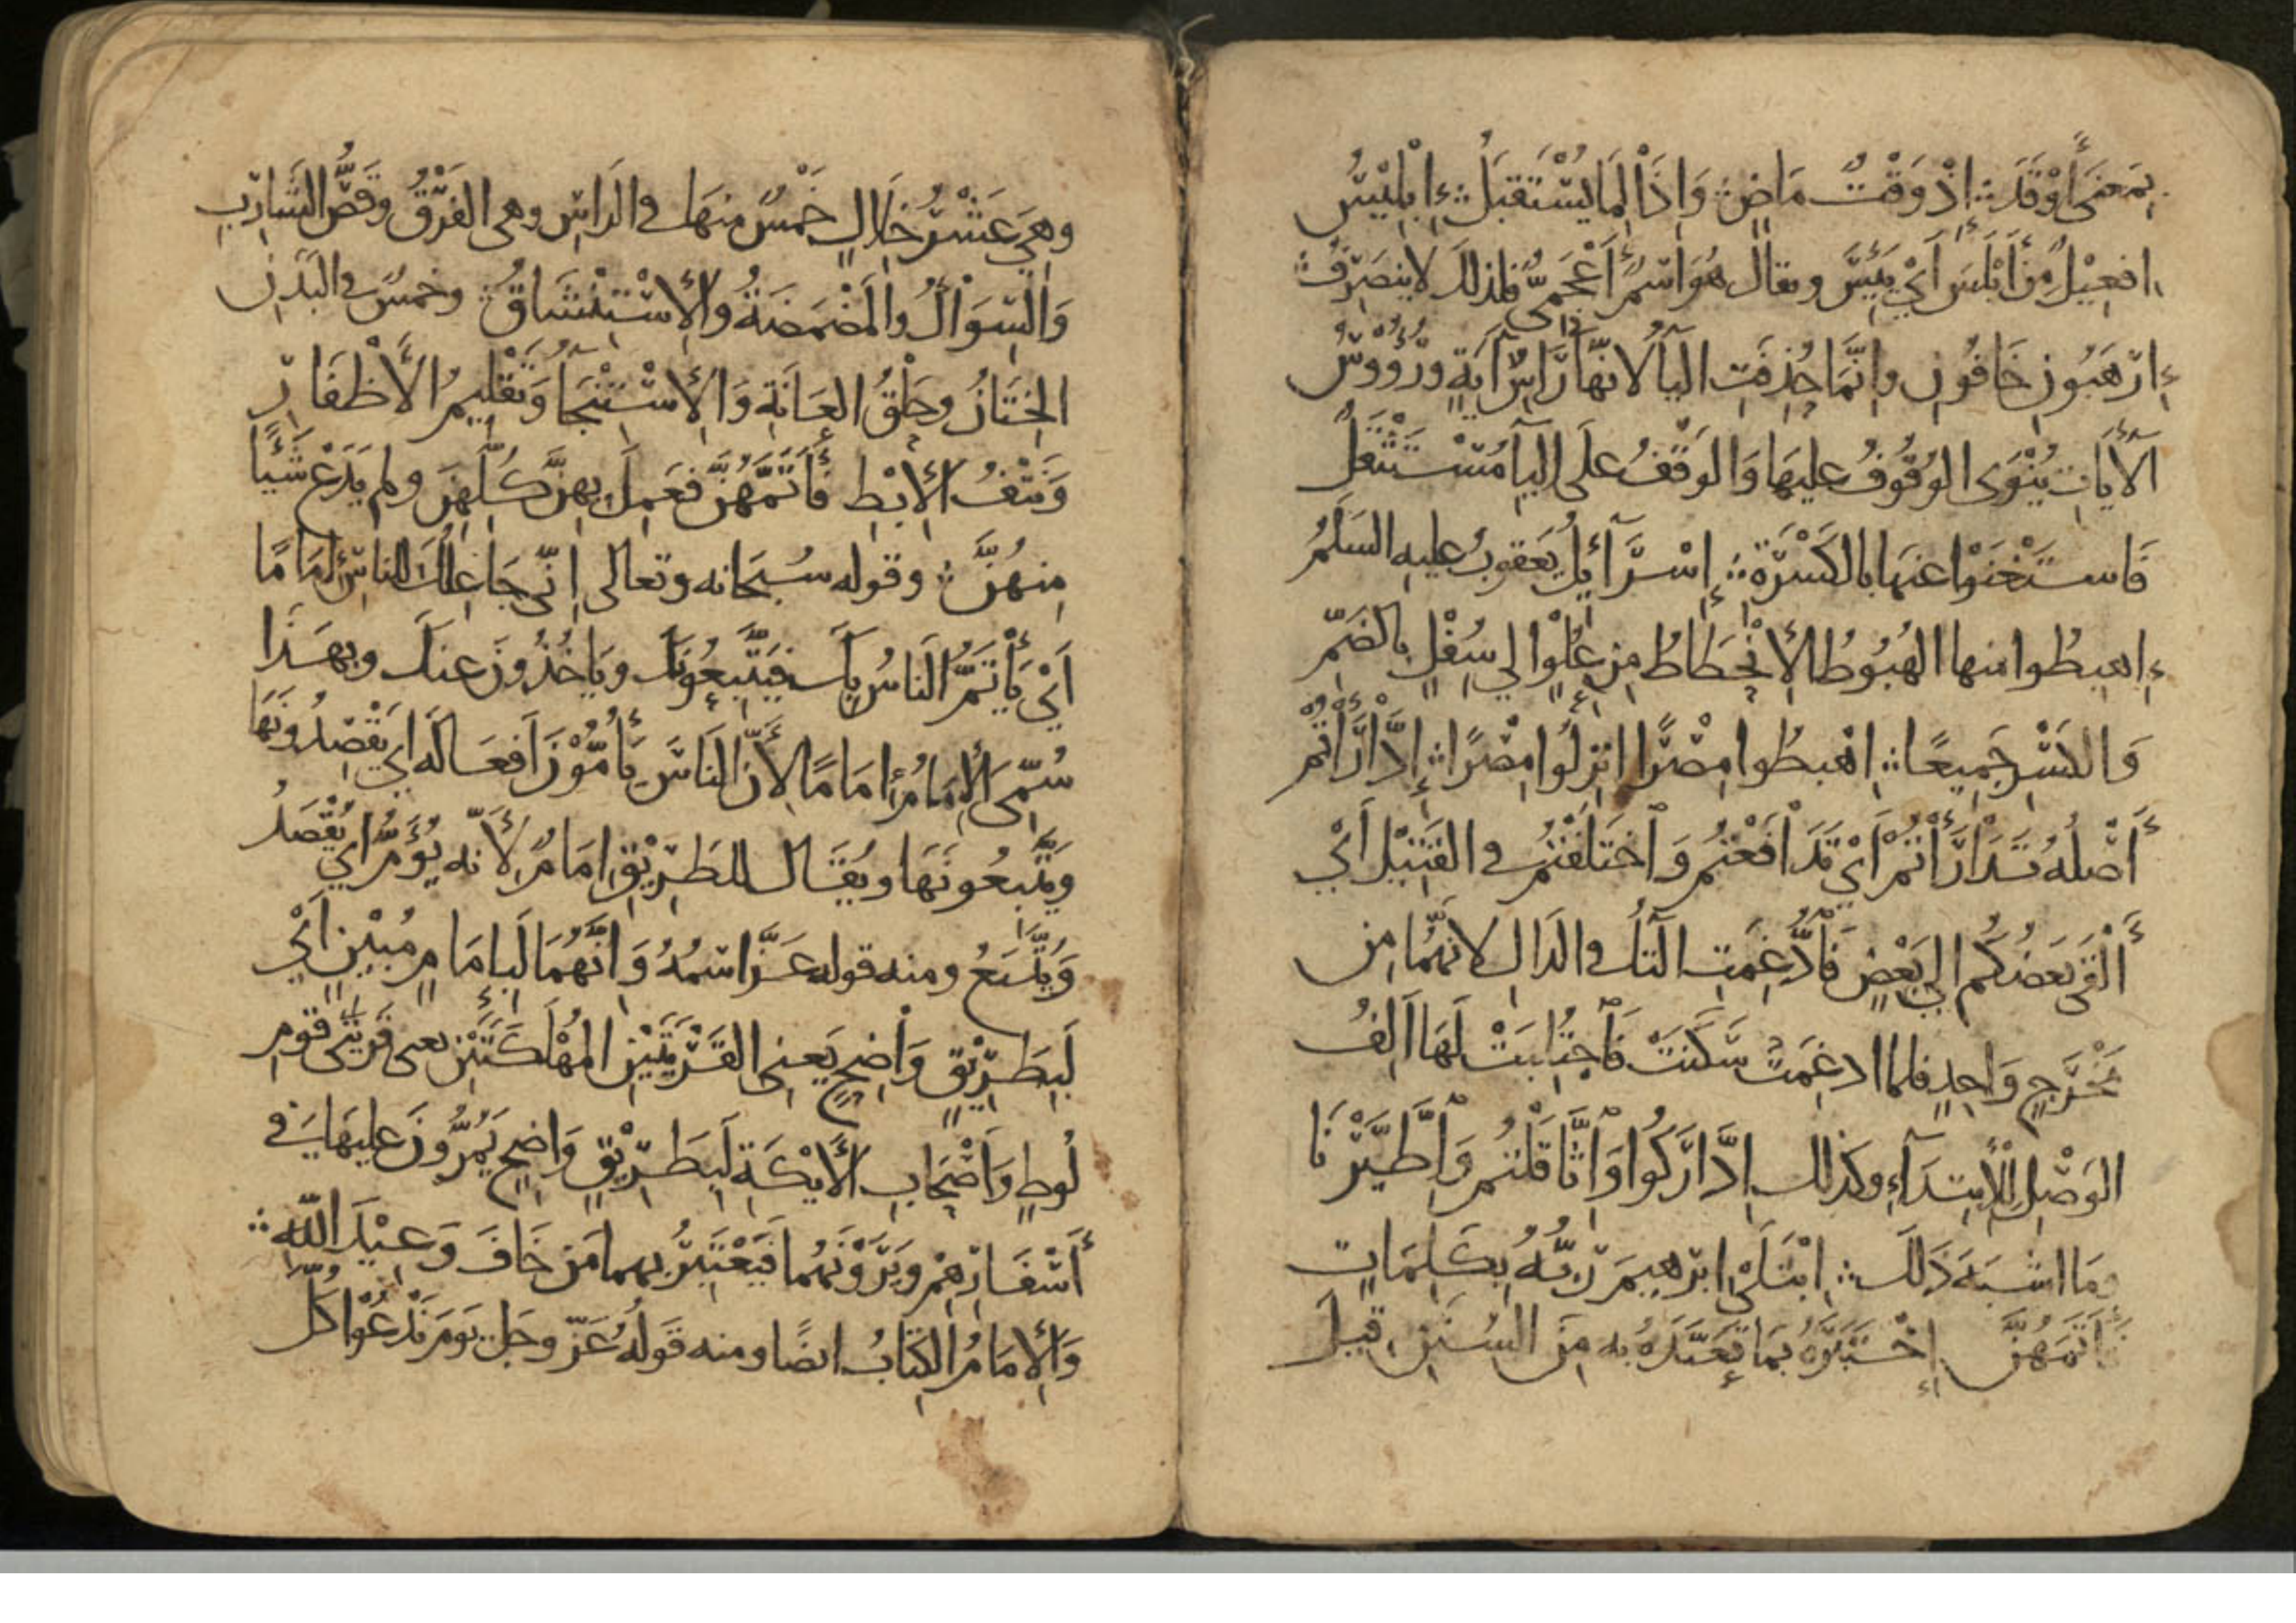 بِمَعنَى أَوْقَدَ ؞ إِذْ وَقْتٌ مَاضٍ ؞ وَإِذَا لِمَا يُسْتَقبَلُ ؞ إِبْلِيْسُ
افعِيْلُ مِنْ أَبْلَسَ أَيْ يَئِسَ ويقال هُوَ اسْمٌ أَعْجَمِيٌّ فلذلكَ لا ينصَرِفُ ؞
إِرْهَبُونِ خَافُونِ وإنَّمَا حُذِفَتِ اليآُ لانّهَا رَأسُ آيَةٍ ورُؤُوْسُ
الآيَاتِ يُنْوَى الوُقُوفُ عليهَا وَالوَقْفُ علَى اليآِ مُسْتَثْقَلٌ
فَاستَغْنَوْا عنهَا بالكَسْرَةِ ؞ إسْرَآئِلُ يَعقوبُ عليهِ السَلَمُ
إِهبِطُوا منها الهُبُوطُ الإنْحِطَاطُ مِن عُلْوٍ الي سُفْلٍ بالضَمِّ
وَالكَسْرِ جَمِيعًا ؞ اهْبِطُوا مِصْرًا انْزِلُوا مِصْرًا ؞ إدَّارَأْتُمْ
أَصْلُهُ تَدَارَأْتُمْ أَيْ تَدَافَعْتُم وَاختَلَفْتُم في القَتِيْلِ أَيْ
أَلْقَى بَعضُكُم الي بَعْضٍ فَأُدْغِمَتِ التآُ في الدَالِ لانهُمَا مِن
مَخْرَجٍ وَاحِدٍ فلما ادغِمَتْ سَكَنَتْ فَاجْتُلِبَتْ لَهَا الِفُ
الوَصْلِ لِلْأِبتِدَآءِ وكذلك ادَّارَكُوا وَاثَّاقَلْتُم وَاطَّيَّرْنَا
وَمَا اشبَهَ ذَلَك ؞ ابْتَلَى ابرهِيمَ رَبُّهُ بِكَلِمَاتٍ
فَأَتَمَهُنَّ إخْتَبَرَهُ بمَا تَعَبَّدَهُ به مِنَ السُنَنِ قِيلَ
وهِيَ عَشْرُ خِلَالٍ خَمْسٌ منهَا في الرَاسِ وهى الفَرْقُ وقَصُّ الشَارِبِ
وَالسِّوَاكُ والمَضْمَضَةُ والإسْتِنْشَاقُ ؞ وخمسٌ في البَدَنِ
الخِتَانُ وحَلْقُ العَانَةِ وَالإسْتِنْجَآُ وَتَقْلِيمُ الأَظْفَارِ
وَنَتْفُ الإبْطِ فَأَتَمَّهُنَّ فعَمِلَ بِهِنَّ كُلِّهِنَ ولم يَدَعْ شَيْئًا
مِنهُنَّ ؞ وقوله سُبحَانه وتعالى انّى جَاعِلُكَ للناسِ إمَامًا
اَيْ يَأْتَمُّ النَاسُ بِكَ فيَتَّبِعُونَكَ ويَاخُذُونَ عنكَ وبِهَذَا
سُمِّيَ الإمَامُ إمَامًا لِأَنَّ النَاسَ يَأُمُّوْنَ اَفعَالَه اي يَقْصِدُونَهَا
ويَتَّبِعُونَهَا ويُقَال للطَرِيْقِ امَامٌ لأَنّه يُؤَمُّ اي يُقْصَدُ
وَيُتَّبَعُ ومنه قوله عَزَّ اسْمُهُ وَانَّهُمَا لَبِإمَامٍ مُبْيِنٍ اَيْ
لَبِطَرِيْقٍ وَاضِحٍ يَعنِي القَرْيَتَيْنِ المُهْلَكَتَيْنِ يعني قَريتَي قومِ
لُوطٍ وَاَصْحَابِ الأَيْكَةِ لَبِطَرِيْقٍ وَاضِحٍ يَمُرُّونَ عليهَا في
أَسْفَارِهِمْ ويَرَوْنَهُمَا فيَعْتَبِرُ بهما مَن خَافَ وَعِيْدَ اللّه ؞
وَالإمَامُ الكِتَابُ ايضًا ومنه قَولُهُ عَزّ وجَل يَومَ نَدْعُوْا كُلَّ